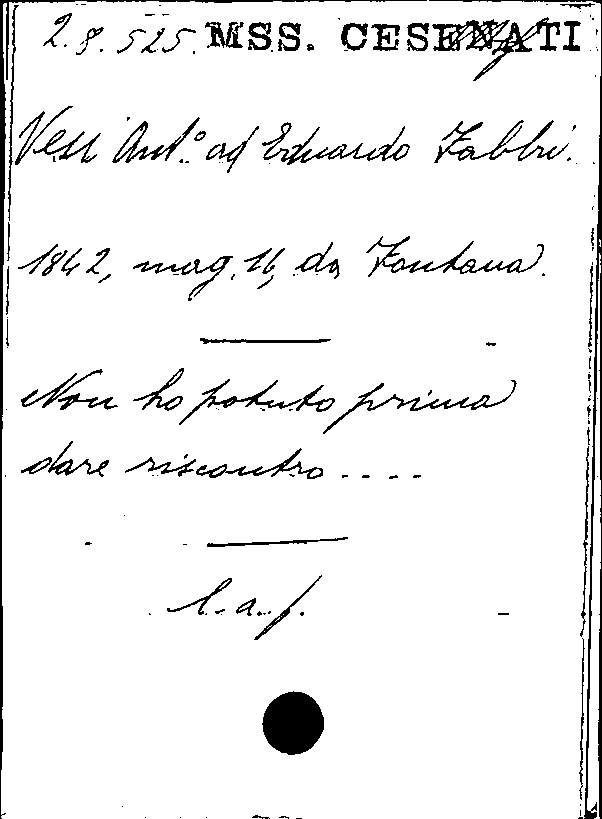 2.8.525. MSS. CESENATI
Vesi Ant.º ad Eduardo Fabbri.
1842, mag. 16, da Fontana.
Non ho potuto prima
dare riscontro....
l. a. f.